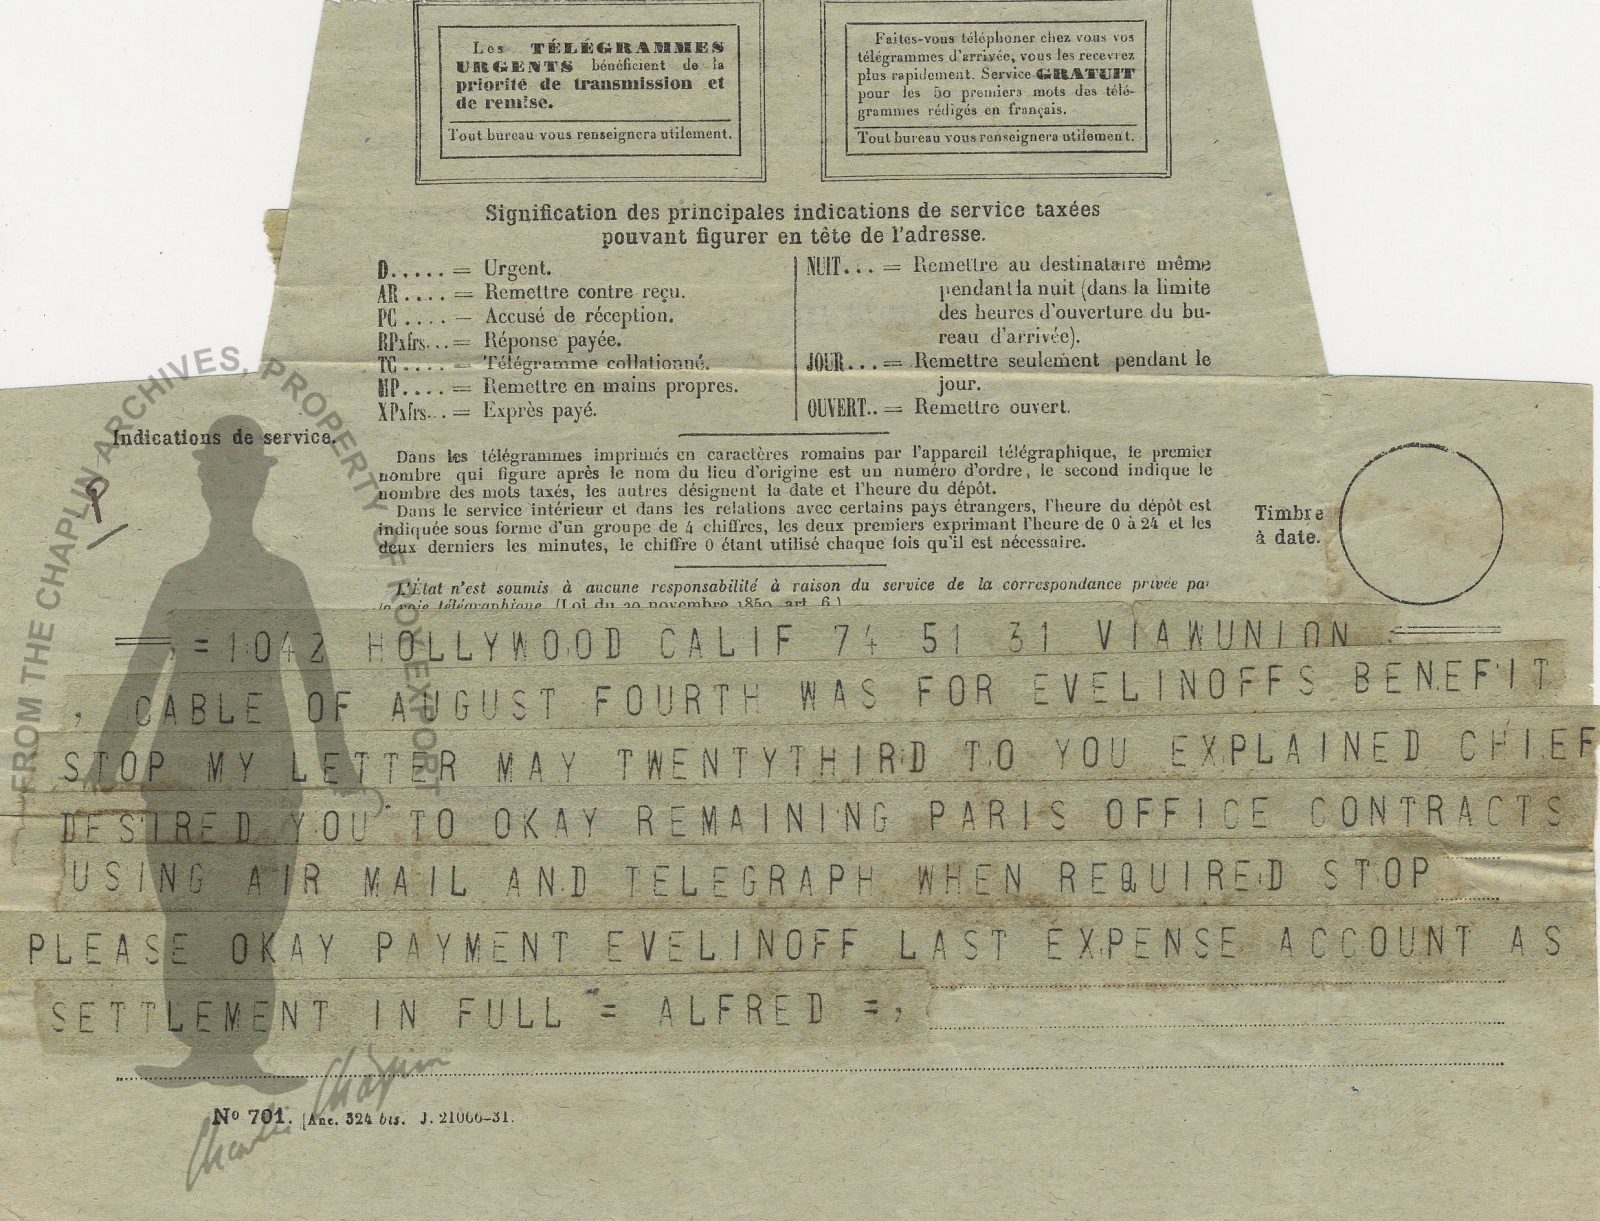 Les TÉLÉGRAMMES
URGENTS bénéficient de la
priorité de transmission et
de remise.
Tout bureau vous renseignera utilement.
Faites-vous téléphoner chez vous vos
télégrammes d'arrivée, vous les recevrez
plus rapidement. Service GRATUIT
pour les 50 premiers mots des télé-
grammes rédigés en français.
Tout bureau vous renseignera utilement.
Signification des principales indications de service taxées
pouvant figurer en tête de l'adresse.
D..... = Urgent.
AR .... = Remettre contre reçu.
PC .... — Accusé de réception.
RPxfrs... = Réponse payée.
TC .... = Télégramme collationné.
MP.... = Remettre en mains propres.
XPxfrs... = Exprès payé.
NUIT... = Remettre au destinataire même
pendant la nuit (dans la limite
des heures d'ouverture du bu-
reau d'arrivée).
JOUR... = Remettre seulement pendant le
jour.
OUVERT.. = Remettre ouvert.
Indications de service.
Dans les télégrammes imprimés en caractères romains par l'appareil télégraphique, le premier
nombre qui figure après le nom du lieu d'origine est un numéro d'ordre, le second indique le
nombre des mots taxés, les autres désignent la date et l'heure du dépôt.
Dans le service intérieur et dans les relations avec certains pays étrangers, l'heure du dépôt est
indiquée sous forme d'un groupe de 4 chiffres, les deux premiers exprimant l'heure de 0 à 24 et les
deux derniers les minutes, le chiffre 0 étant utilisé chaque fois qu'il est nécessaire.
Timbre
à date.
L'État n'est soumis à aucune responsabilité à raison du service de la correspondance privée par
la voie télégraphique. (Loi du 29 novembre 1850, art. 6.)
, = 1042 HOLLYWOOD CALIF 74 51 31 VIAWUNION =
, CABLE OF AUGUST FOURTH WAS FOR EVELINOFFS BENEFIT
STOP MY LETTER MAY TWENTYTHIRD TO YOU EXPLAINED CHIEF
DESIRED YOU TO OKAY REMAINING PARIS OFFICE CONTRACTS
USING AIR MAIL AND TELEGRAPH WHEN REQUIRED STOP
PLEASE OKAY PAYMENT EVELINOFF LAST EXPENSE ACCOUNT AS
SETTLEMENT IN FULL = ALFRED =,
Nº 701. [Anc. 324 bis. J. 21066-31.
FROM THE CHAPLIN ARCHIVES, PROPERTY OF ROY EXPORT
Charlie Chaplin